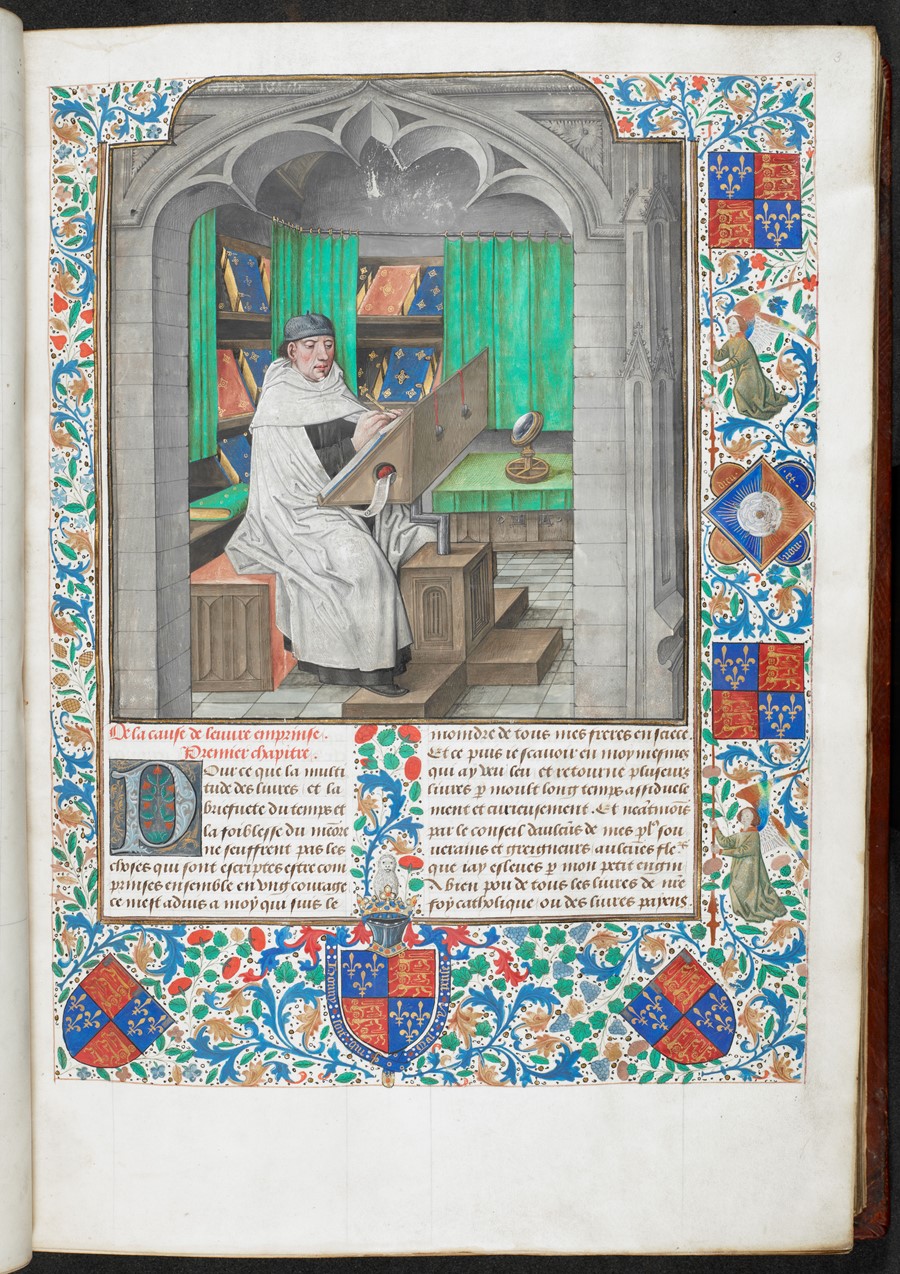 De la cause de leuure emprinse.
Premier chapitre.
Pour ce que la multi
tude des liures et la
briefuete du temps et
la foiblesse du
ne seuffrent pas les
choses qui sont escriptes estre com
prinses ensemble en vng courage
ce mest aduis a moy qui suis le
moindre de tous mes freres en
Et ce puis ie scauoir en moy mesmes
qui ay veu leu et retourne pluseurs
liures p moult long temps assiduele
ment et curieusement. Et
par le conseil daulcūs de mes sou
uerains et greigneurs aulcunes
que iay esleues p mon petit engin
A bien pou de tous les liures de nr̄e
foy catholique ou des liures payens.
3
dieu et
mon
honny soit qui mal y pense